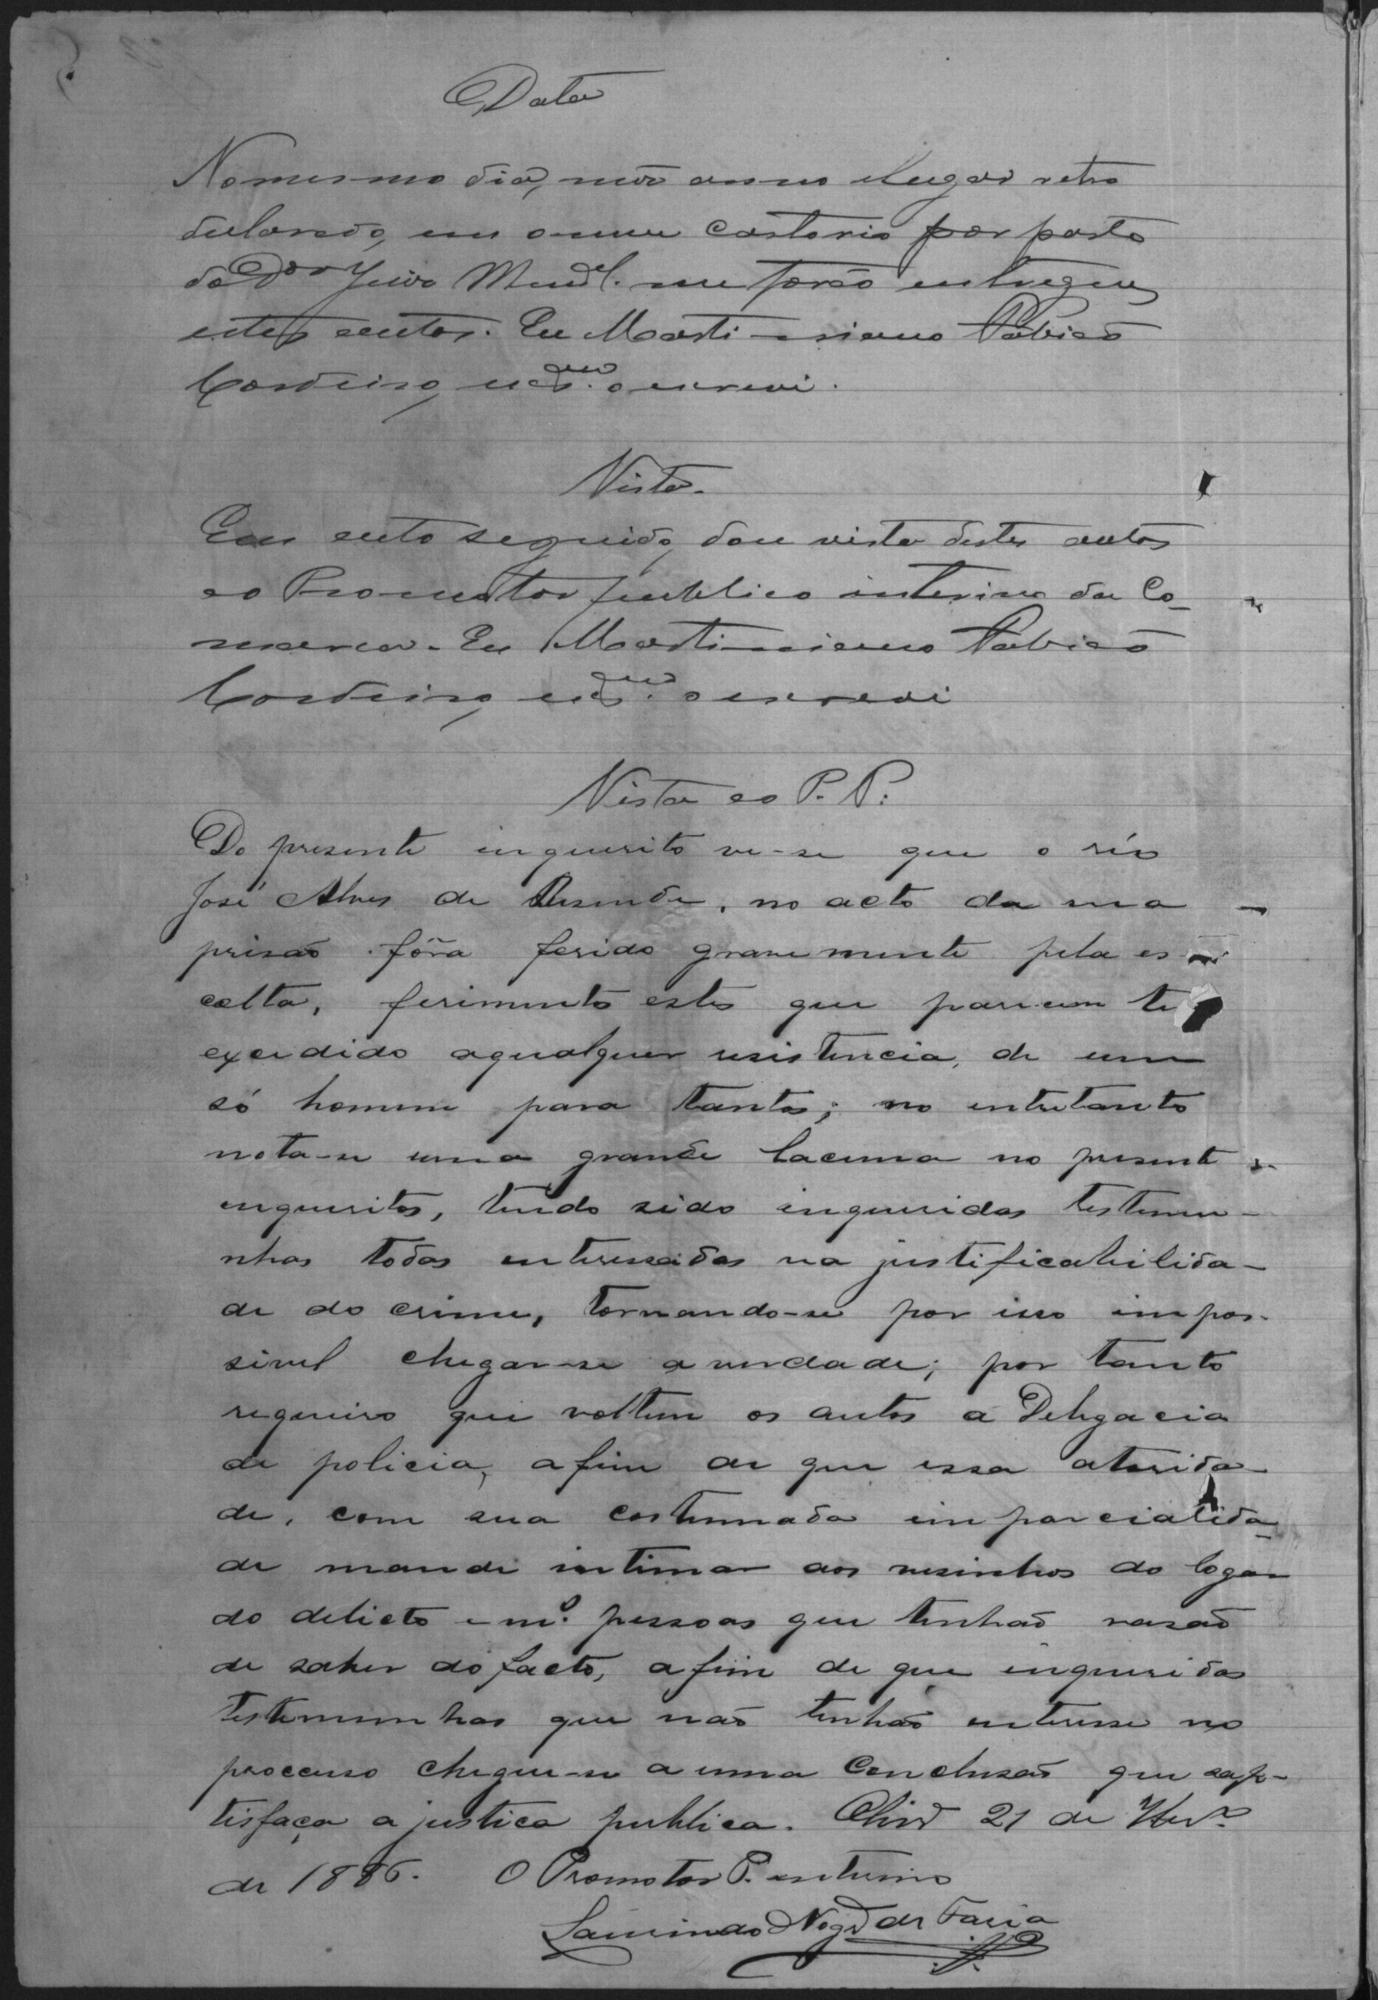 Data
No mesmo dia, mez anno e lugar retro
declarado, em o meu cartorio por parte
do Dor Juiz Mun.al me forão entregues
estes autos. Eu Martiniano
Cordeiro, escam. o escrevi.
Vista.
Em acto seguido, dou vista destes autos
ao Promotor publico interino da Co-
marca. Eu Martiniano
Cordeiro, escam. o escrevi
Vista ao P. P.:
Do presente inquerito ve-se que o réo
José Alves de Resende, no acto da sua
prisão fôra ferido gravemente pela es
colta, ferimentos estes que parecem te
excedido aqualquer resistencia, de um
só homem para tantos; no entretanto
nota-se uma grande lacuna no presente
enquerito, tendo sido inqueridas testemu-
nhas todas enteressadas na justificabilida-
de do crime, tornando-se por isso impos-
sivel chegar-se a verdade; por tanto
requeiro que voltem os autos a Delegacia
de policia, afim de que essa autorida-
de, com sua costumada imparcialida-
de mande intimar aos vesinhos do logar
do delicto e m.o pessoas que tenhão rasão
de saber do facto, afim de que inqueridas
testemunhas que não tenhão enteresse no
processo chegue-se a uma conclusão que sa-
tisfaça a justiça publica. 21 de
de 1886. O Promotor P. enterino
Laurindo Nogr.a de Faria